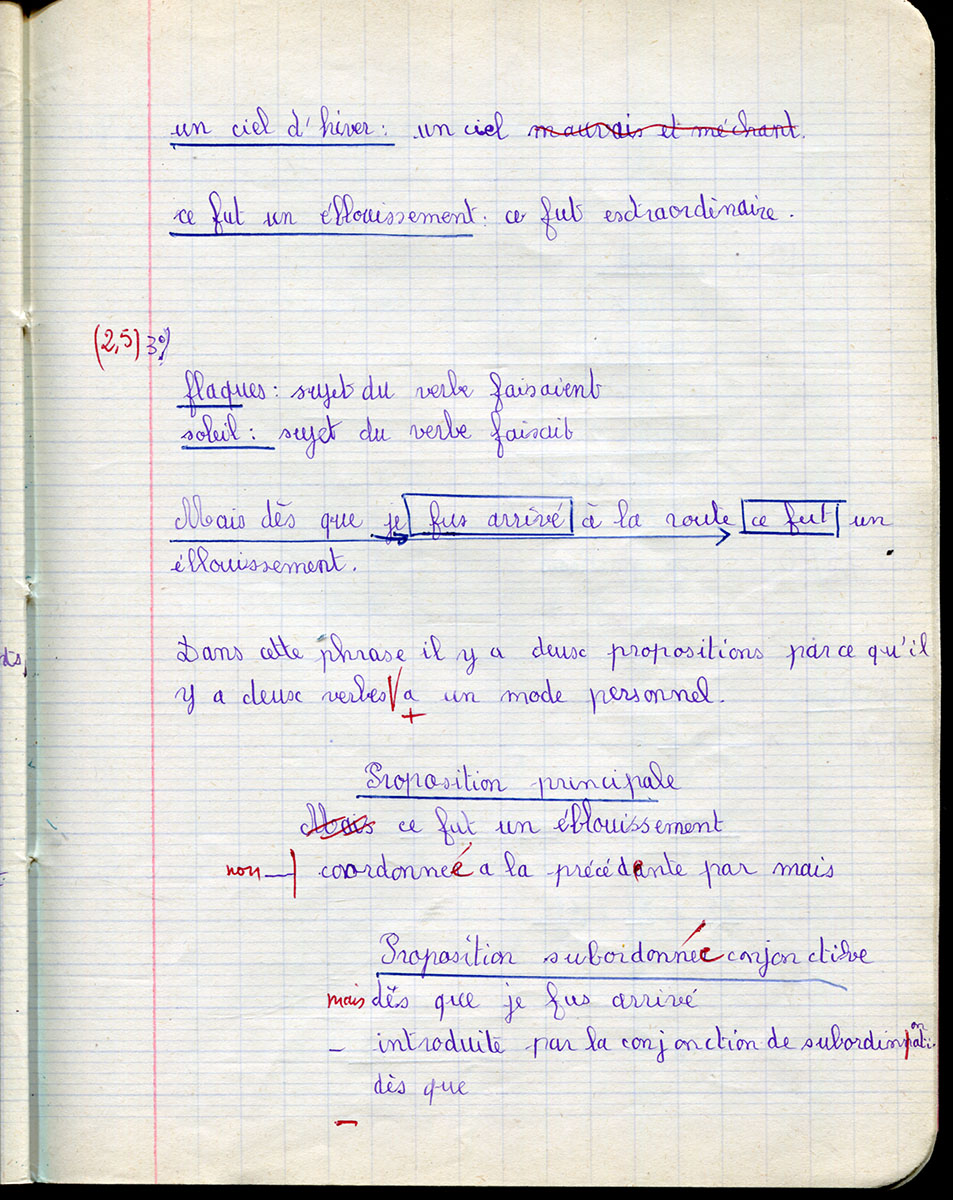 un ciel d'hiver : un ciel mauvais et méchant.
ce fut un éblouissement : ce fut extraordinaire.
(2,5) 3°/
flaques : sujet du verbe faisaient
soleil : sujet du verbe faisait
Mais dès que je fus arrivé à la route ce fut un
éblouissement.
Dans cette phrase il y a deux propositions parce qu'il
y a deux verbes a un mode personnel.
+
Proposition principale
Mais ce fut un éblouissement
non coordonnée a la précédente par mais
Proposition subordonnée conjonctive
mais dès que je fus arrivé
- introduite par la conjonction de subordination
dès que